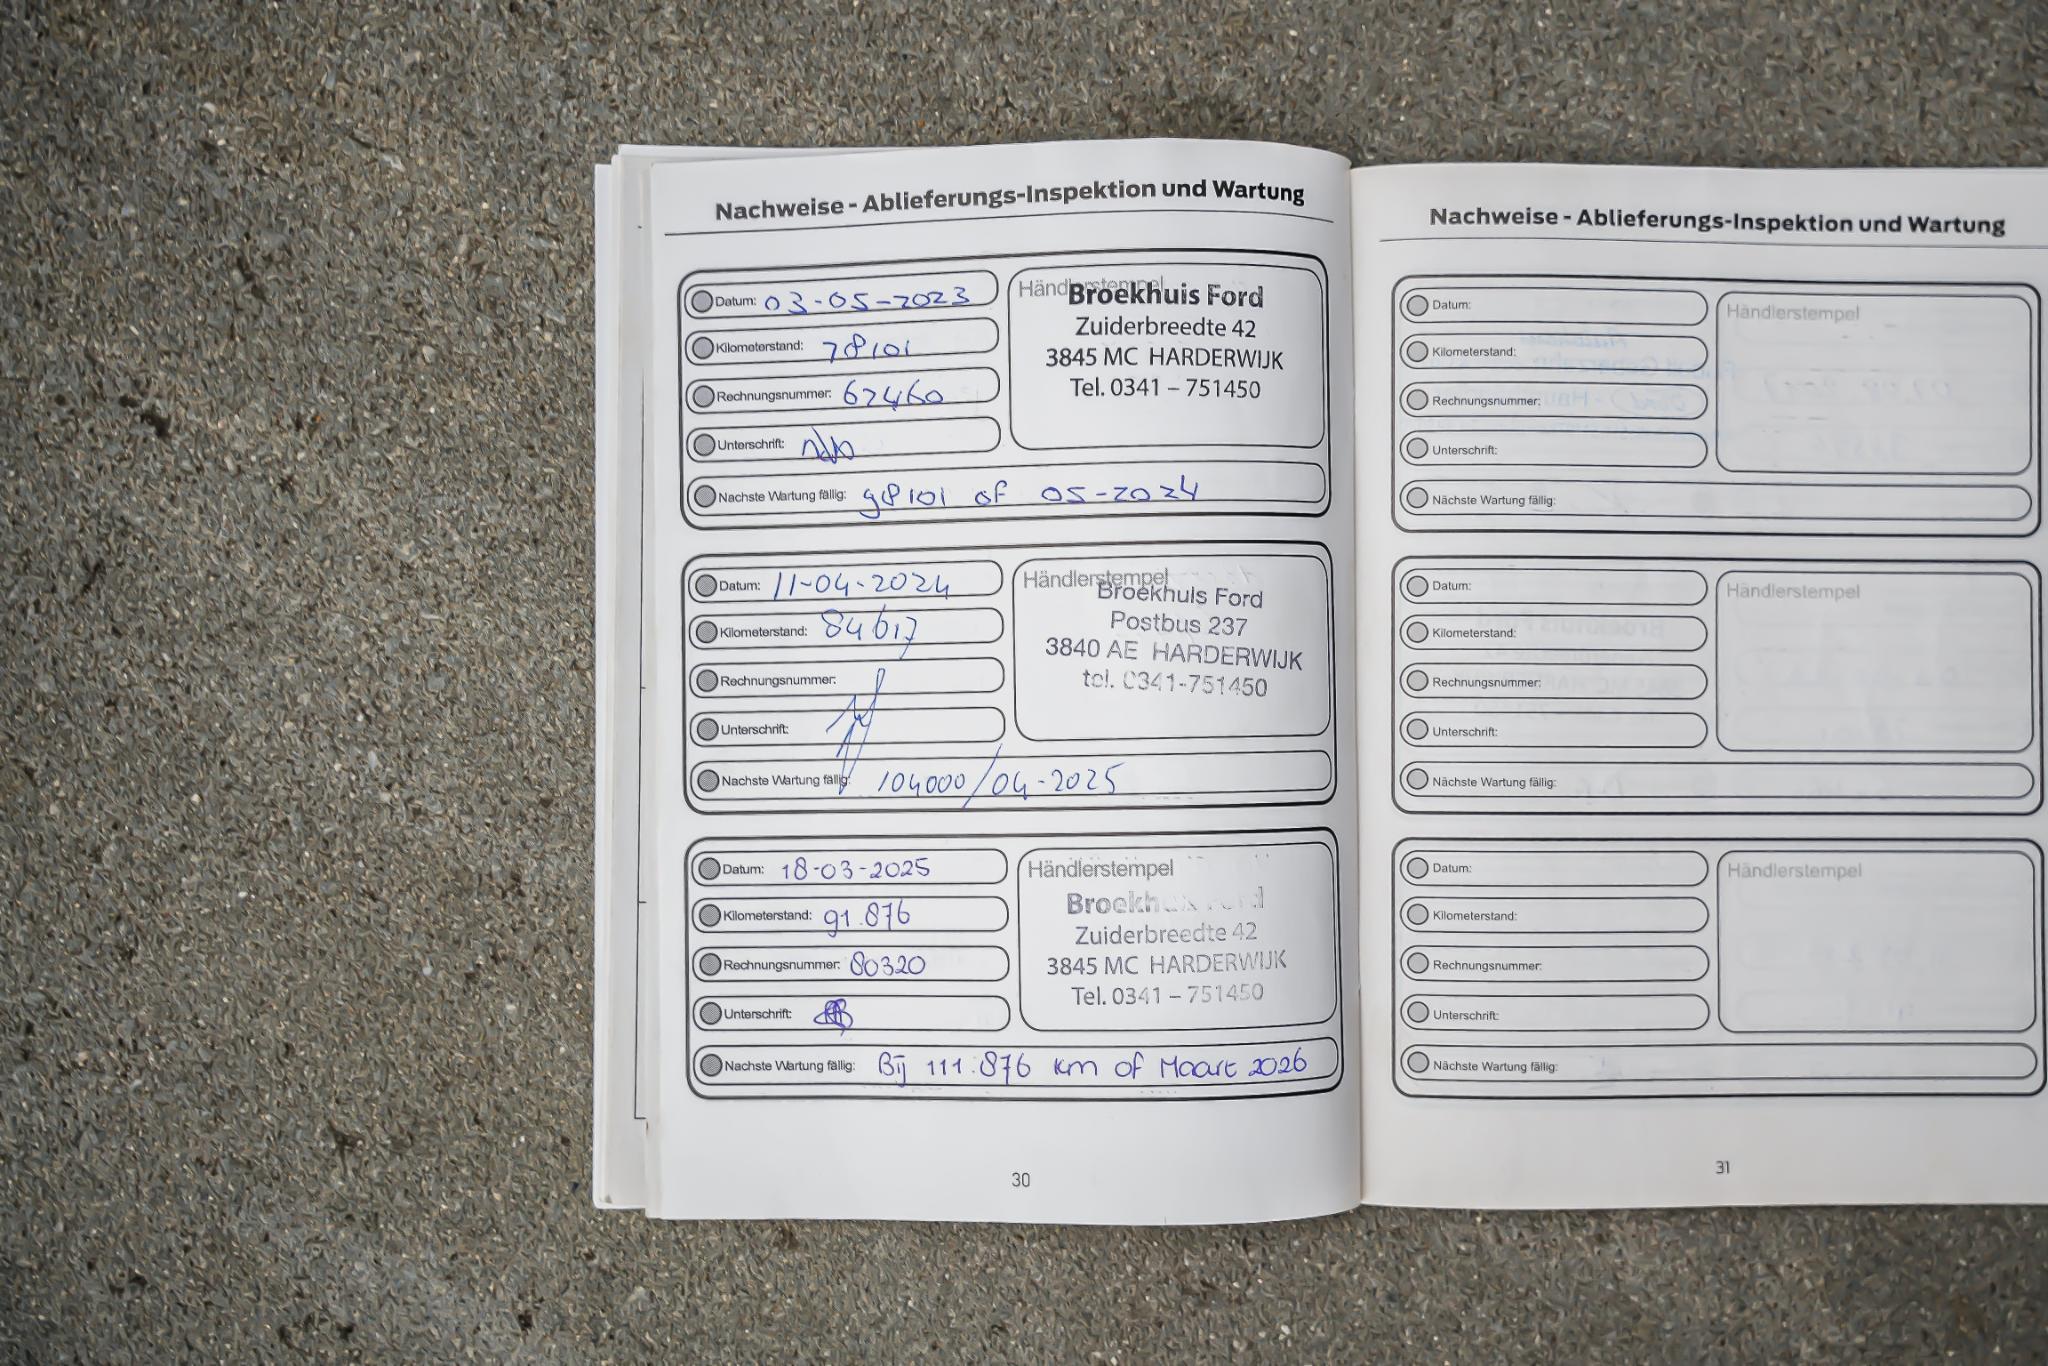 Nachweise - Ablieferungs-Inspektion und Wartung
Datum: 03-05-2023
Kilometerstand: 78101
Rechnungsnummer: 67460
Unterschrift:
Nächste Wartung fällig: 98101 of 05-2024
Händlerstempel
Broekhuis Ford
Zuiderbreedte 42
3845 MC HARDERWIJK
Tel. 0341 – 751450
Datum: 11-04-2024
Kilometerstand: 84617
Rechnungsnummer:
Unterschrift:
Nächste Wartung fällig: 104000/04-2025
Händlerstempel
Broekhuis Ford
Postbus 237
3840 AE HARDERWIJK
tel. 0341-751450
Datum: 18-03-2025
Kilometerstand: 91.876
Rechnungsnummer: 80320
Unterschrift:
Nächste Wartung fällig: Bij 111.876 km of Maart 2026
Händlerstempel
Broekhuis Ford
Zuiderbreedte 42
3845 MC HARDERWIJK
Tel. 0341 – 751450
30
Nachweise - Ablieferungs-Inspektion und Wartung
Datum:
Kilometerstand:
Rechnungsnummer:
Unterschrift:
Nächste Wartung fällig:
Händlerstempel
Datum:
Kilometerstand:
Rechnungsnummer:
Unterschrift:
Nächste Wartung fällig:
Händlerstempel
Datum:
Kilometerstand:
Rechnungsnummer:
Unterschrift:
Nächste Wartung fällig:
Händlerstempel
31